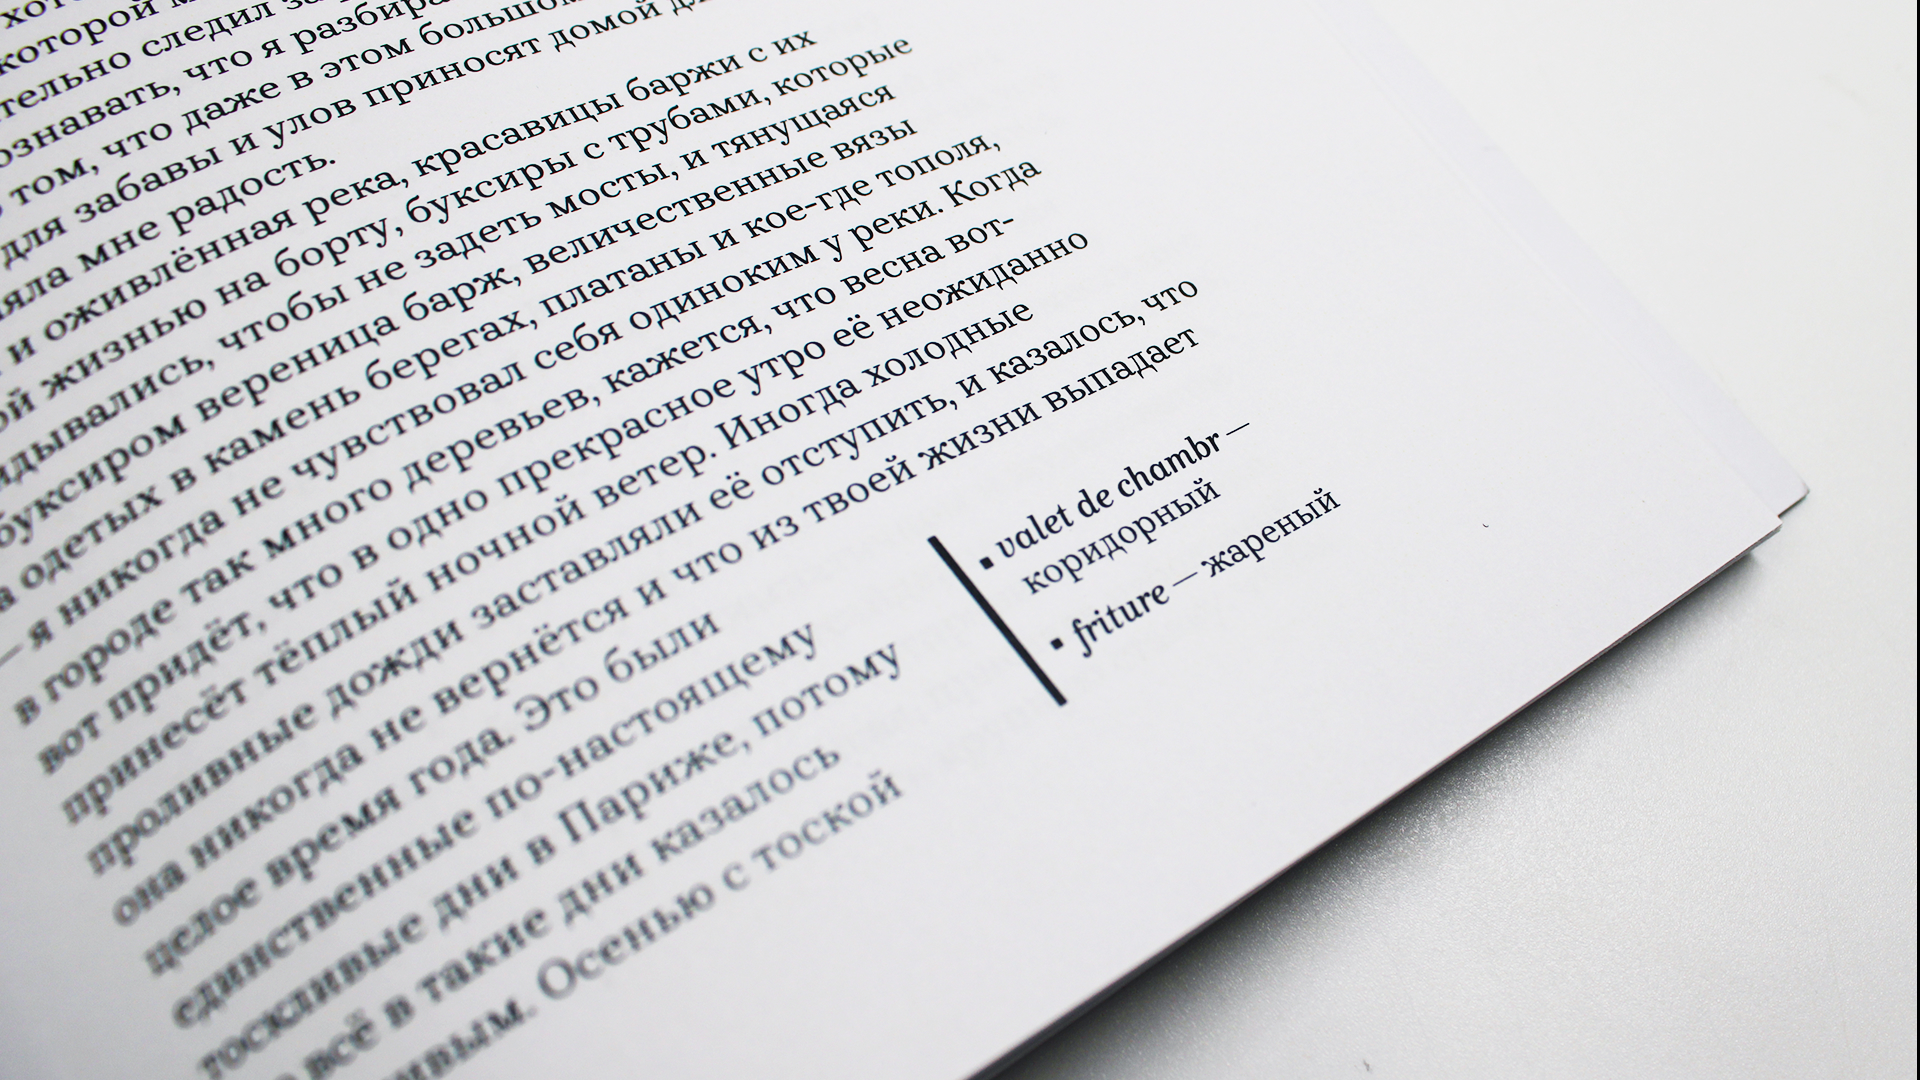 которой
тельно следил за
ознавать, что я разбира
том, что даже в этом большом
для забавы и улов приносят домой
яла мне радость.
и оживлённая река, красавицы баржи с их
ой жизнью на борту, буксиры с трубами, которые
идывались, чтобы не задеть мосты, и тянущаяся
буксиром вереница барж, величественные вязы
а одетых в камень берегах, платаны и кое-где тополя,
— я никогда не чувствовал себя одиноким у реки. Когда
в городе так много деревьев, кажется, что весна вот-
вот придёт, что в одно прекрасное утро её неожиданно
принесёт тёплый ночной ветер. Иногда холодные
проливные дожди заставляли её отступить, и казалось, что
она никогда не вернётся и что из твоей жизни выпадает
целое время года. Это были
единственные по-настоящему
тоскливые дни в Париже, потому
всё в такие дни казалось
ивым. Осенью с тоской
▪ valet de chambr —
коридорный
▪ friture — жареный